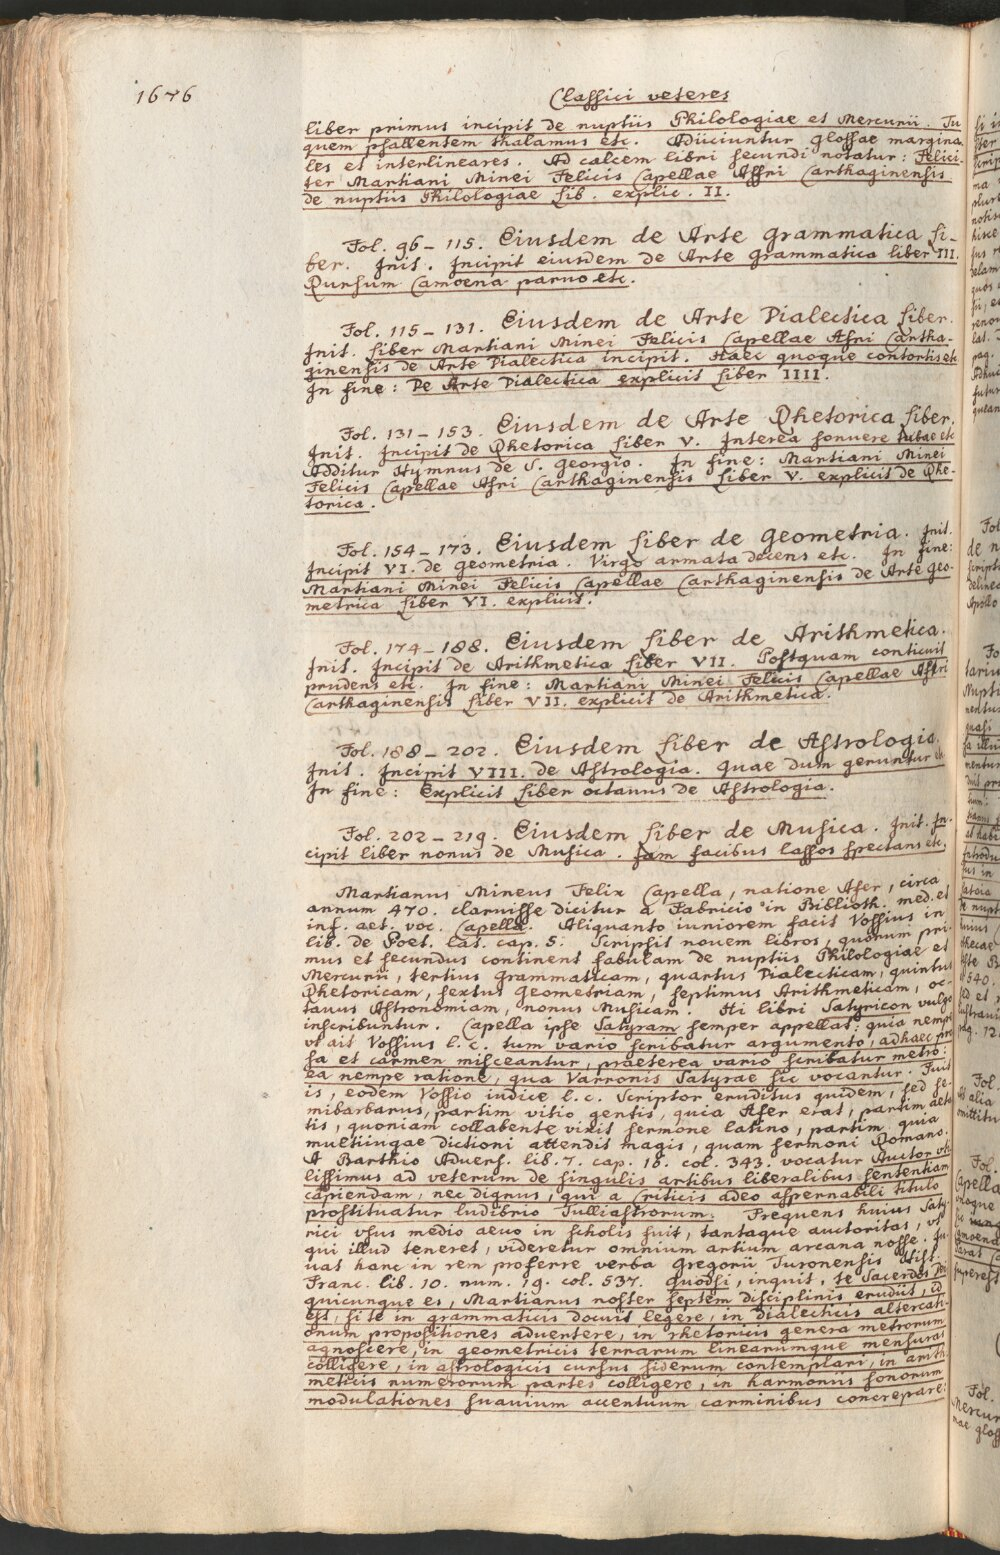 1676
Classici veteres
liber primus incipit de nuptiis Philologiae et Mercurii. Tu
quem psallentem thalamus etc. Adiiciuntur glossae margina-
les et interlineares. Ad calcem libri secundi notatur: Felici-
ter Martiani Minei Felicis Capellae Affri Carthaginensis
de nuptiis Philologiae Lib. explic. II.
Fol. 96–115. Eiusdem de Arte grammatica Li-
ber. Init. Incipit eiusdem de Arte grammatica liber III.
Rursum Camoena paruo etc.
Fol. 115–131. Eiusdem de Arte Dialectica Liber.
Init. Liber Martiani Minei Felicis Capellae Afri Cartha-
ginensis de Arte Dialectica incipit. Haec quoque contortis etc
In fine: De Arte Dialectica explicit Liber IIII.
Fol. 131–153. Eiusdem de Arte Rhetorica Liber.
Init. Incipit de Rhetorica Liber V. Interea sonuere tubae etc
Additur Hymnus de S. Georgio. In fine: Martiani Minei
Felicis Capellae Afri Carthaginensis Liber V. explicit de Rhe-
torica.
Fol. 154–173. Eiusdem Liber de Geometria. Init.
Incipit VI. de Geometria. Virgo armata decens etc. In fine:
Martiani Minei Felicis Capellae Carthaginensis de Arte Geo-
metrica Liber VI. explicit.
Fol. 174–188. Eiusdem Liber de Arithmetica.
Init. Incipit de Arithmetica Liber VII. Postquam conticuit
prudens etc. In fine: Martiani Minei Felicis Capellae Affri
Carthaginensis Liber VII. explicit de Arithmetica.
Fol. 188–202. Eiusdem Liber de Astrologia.
Init. Incipit VIII. de Astrologia. Quae dum geruntur etc
In fine: Explicit Liber octauus de Astrologia.
Fol. 202–219. Eiusdem Liber de Musica. Init. In-
cipit liber nonus de Musica. Iam facibus lassos spectans etc.
Martianus Mineus Felix Capella, natione Afer, circa
annum 470. claruisse dicitur a Fabricio in Biblioth. med. et
inf. aet. voc. Capella. Aliquanto iuniorem facit Vossius in
lib. de Poet. Lat. cap. 5. Scripsit nouem libros, quorum pri-
mus et secundus continent fabulam de nuptiis Philologiae et
Mercurii, tertius Grammaticam, quartus Dialecticam, quintus
Rhetoricam, sextus Geometriam, septimus Arithmeticam, oc-
tauus Astronomiam, nonus Musicam. Hi libri Satyricon vulgo
inscribuntur. Capella ipse Satyram semper appellat: quia nempe
vt ait Vossius l. c. tum vario scribatur argumento, adhaec pro
sa et carmen misceantur, praeterea vario scribatur metro:
ea nempe ratione, qua Varronis Satyrae sic vocantur. Fuit
is, eodem Vossio iudice l. c. Scriptor eruditus quidem, sed se-
mibarbarus, partim vitio gentis, quia Afer erat, partim aeta
tis, quoniam collabente vixit sermone latino, partim quia
multiiugae dictioni attendit magis, quam sermoni Romano.
A Barthio Advers. lib. 7. cap. 18. col. 343. vocatur Auctor vti-
lissimus ad veterum de singulis artibus liberalibus sententiam
capiendam, nec dignus, qui a Criticis adeo aspernabili titulo
prostituatur ludibrio Tulliastrorum. Frequens huius Saty-
rici vsus medio aeuo in scholis fuit, tantaque auctoritas, vt
qui illud teneret, videretur omnium artium arcana nosse. Iu-
uat hanc in rem proferre verba Gregorii Turonensis Hist.
Franc. lib. 10. num. 19. col. 537. Quodsi, inquit, te Sacerdos Dei
quicunque es, Martianus noster septem disciplinis erudiit, id
est, si te in grammaticis docuit legere, in dialecticis altercati-
onum propositiones aduertere, in rhetoricis genera metrorum
agnoscere, in geometricis terrarum linearumque mensuras
colligere, in astrologicis cursus siderum contemplari, in arith
meticis numerorum partes colligere, in harmoniis sonorum
modulationes suauium accentuum carminibus concrepare: